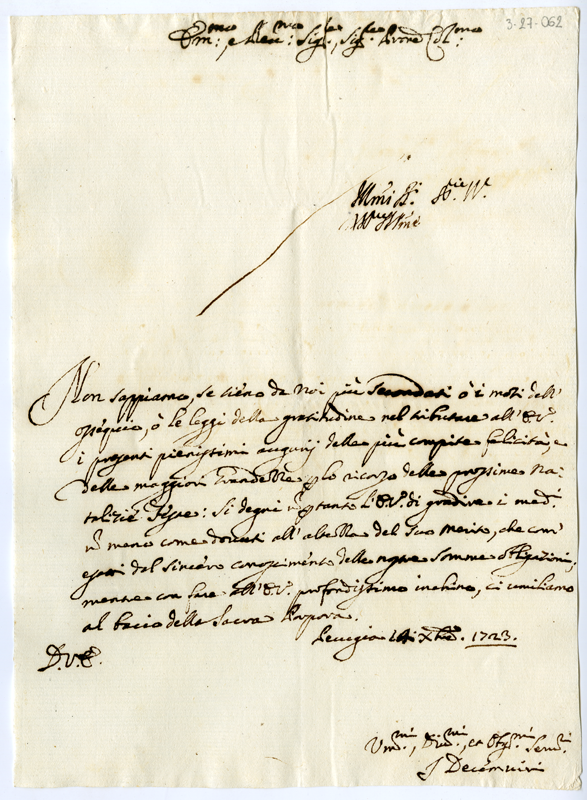 3-27-062
Em:mo, e Reu:mo Sig:re, Sig:re Prone Col:mo
Non sappiamo, se sieno da Noi più secondati ò i moti dell'
ossequio, ò le leggi della gratitudine nel tributare all'E.V.
i presenti pienissimi augurij delle più compite felicità, e
delle maggiori Grandezze p lo ricorso delle prossime Na-
talizie Feste: Si degni ptanto l'E.V. di gradire i med.mi
n meno come dovuti all'altezza del suo merito, che con-
essi dal sincero conoscimento delle nostre somme obligazioni,
mentre con fare all'E.V. profondissimo inchino, ci umiliamo
al bacio della Sacra Porpora.
Perugia 14 Xbre 1723.
D.V.E.
Um:mi, Diu:mi, et Obg:mi Seru:ri
J Decemuiri